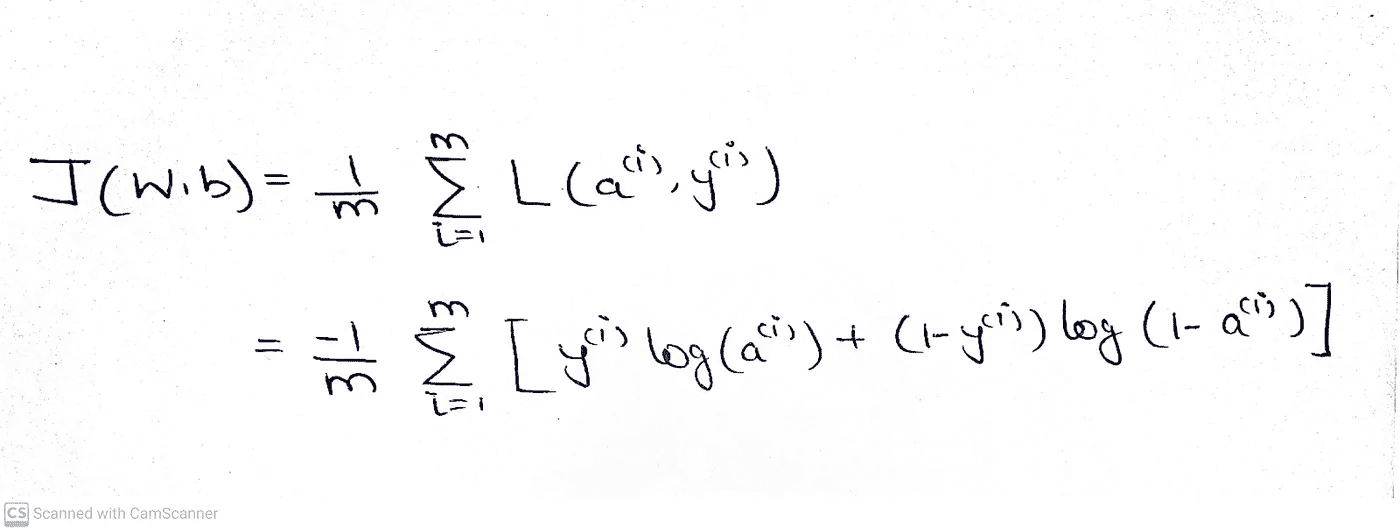 J(W,b) = 1/m Σ_{i=1}^{m} L(a^{(i)}, y^{(i)})
= -1/m Σ_{i=1}^{m} [y^{(i)} log(a^{(i)}) + (1-y^{(i)}) log(1-a^{(i)})]
CS Scanned with CamScanner